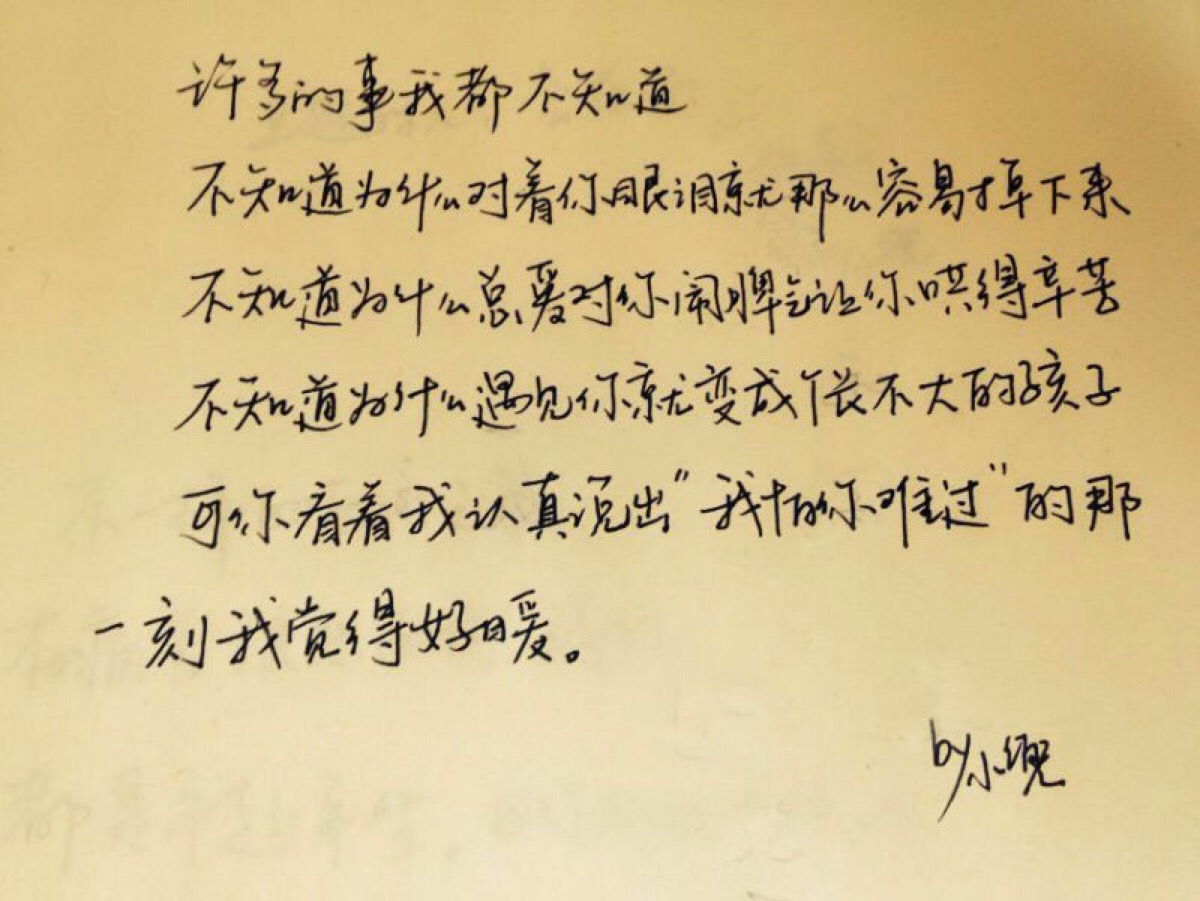 许多的事我都不知道
不知道为什么对着你眼泪就那么容易掉下来
不知道为什么总爱对你闹脾气让你哄得辛苦
不知道为什么遇见你就变成个长不大的孩子
可你看着我认真说出"我怕你难过"的那
一刻我觉得好暖。
by小